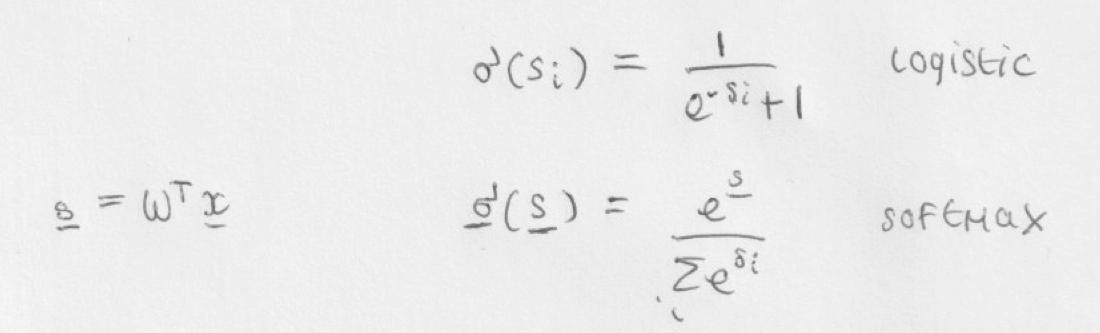 σ(sᵢ) = 1 / (e^(-sᵢ) + 1) logistic
s̲ = Wᵀ x̲ σ̲(s̲) = e^s̲ / Σᵢ e^(sᵢ) softmax